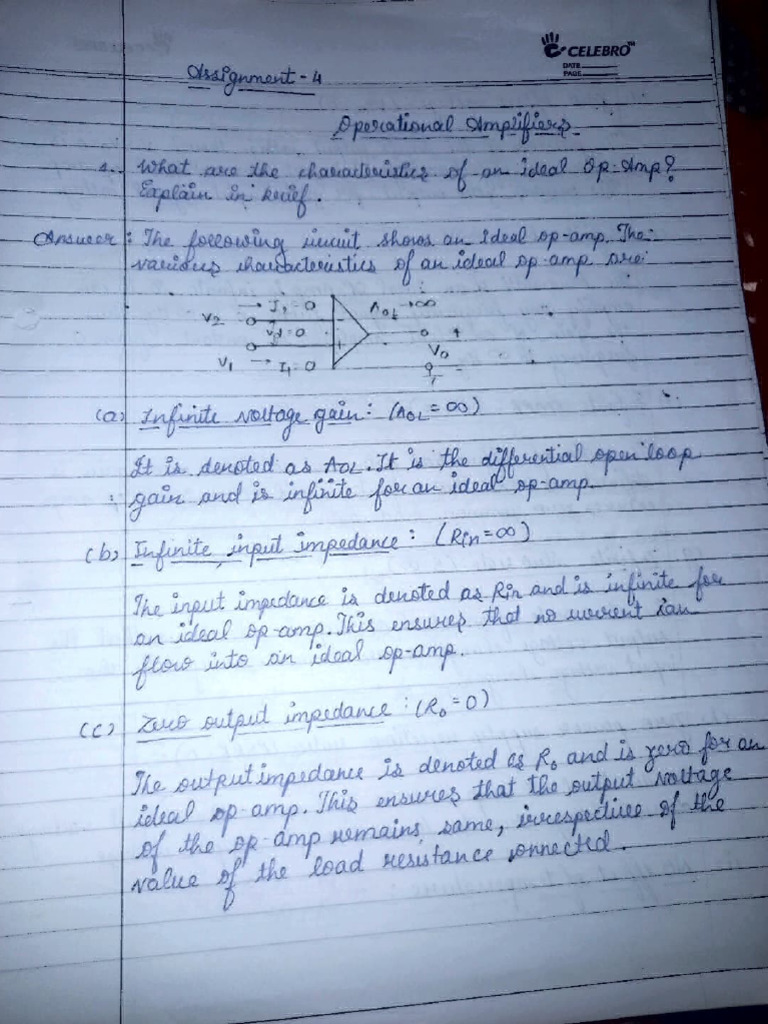 CELEBRO™
DATE
PAGE
Assignment - 4
Operational Amplifiers
1. What are the characteristics of an ideal Op-Amp?
Explain in brief.
Answer: The following circuit shows an ideal op-amp. The
various characteristics of an ideal op-amp are:
→ I₁ = 0 AOL → ∞
V2 Vd = 0 +
V1 → I1 = 0 Vo
(a) Infinite voltage gain: (AOL = ∞)
It is denoted as AOL. It is the differential open loop
gain and is infinite for an ideal op-amp.
(b) Infinite input impedance: (Rin = ∞)
The input impedance is denoted as Rin and is infinite for
an ideal op-amp. This ensures that no current can
flow into an ideal op-amp.
(c) Zero output impedance: (Ro = 0)
The output impedance is denoted as Ro and is zero for an
ideal op-amp. This ensures that the output voltage
of the op-amp remains same, irrespective of the
value of the load resistance connected.